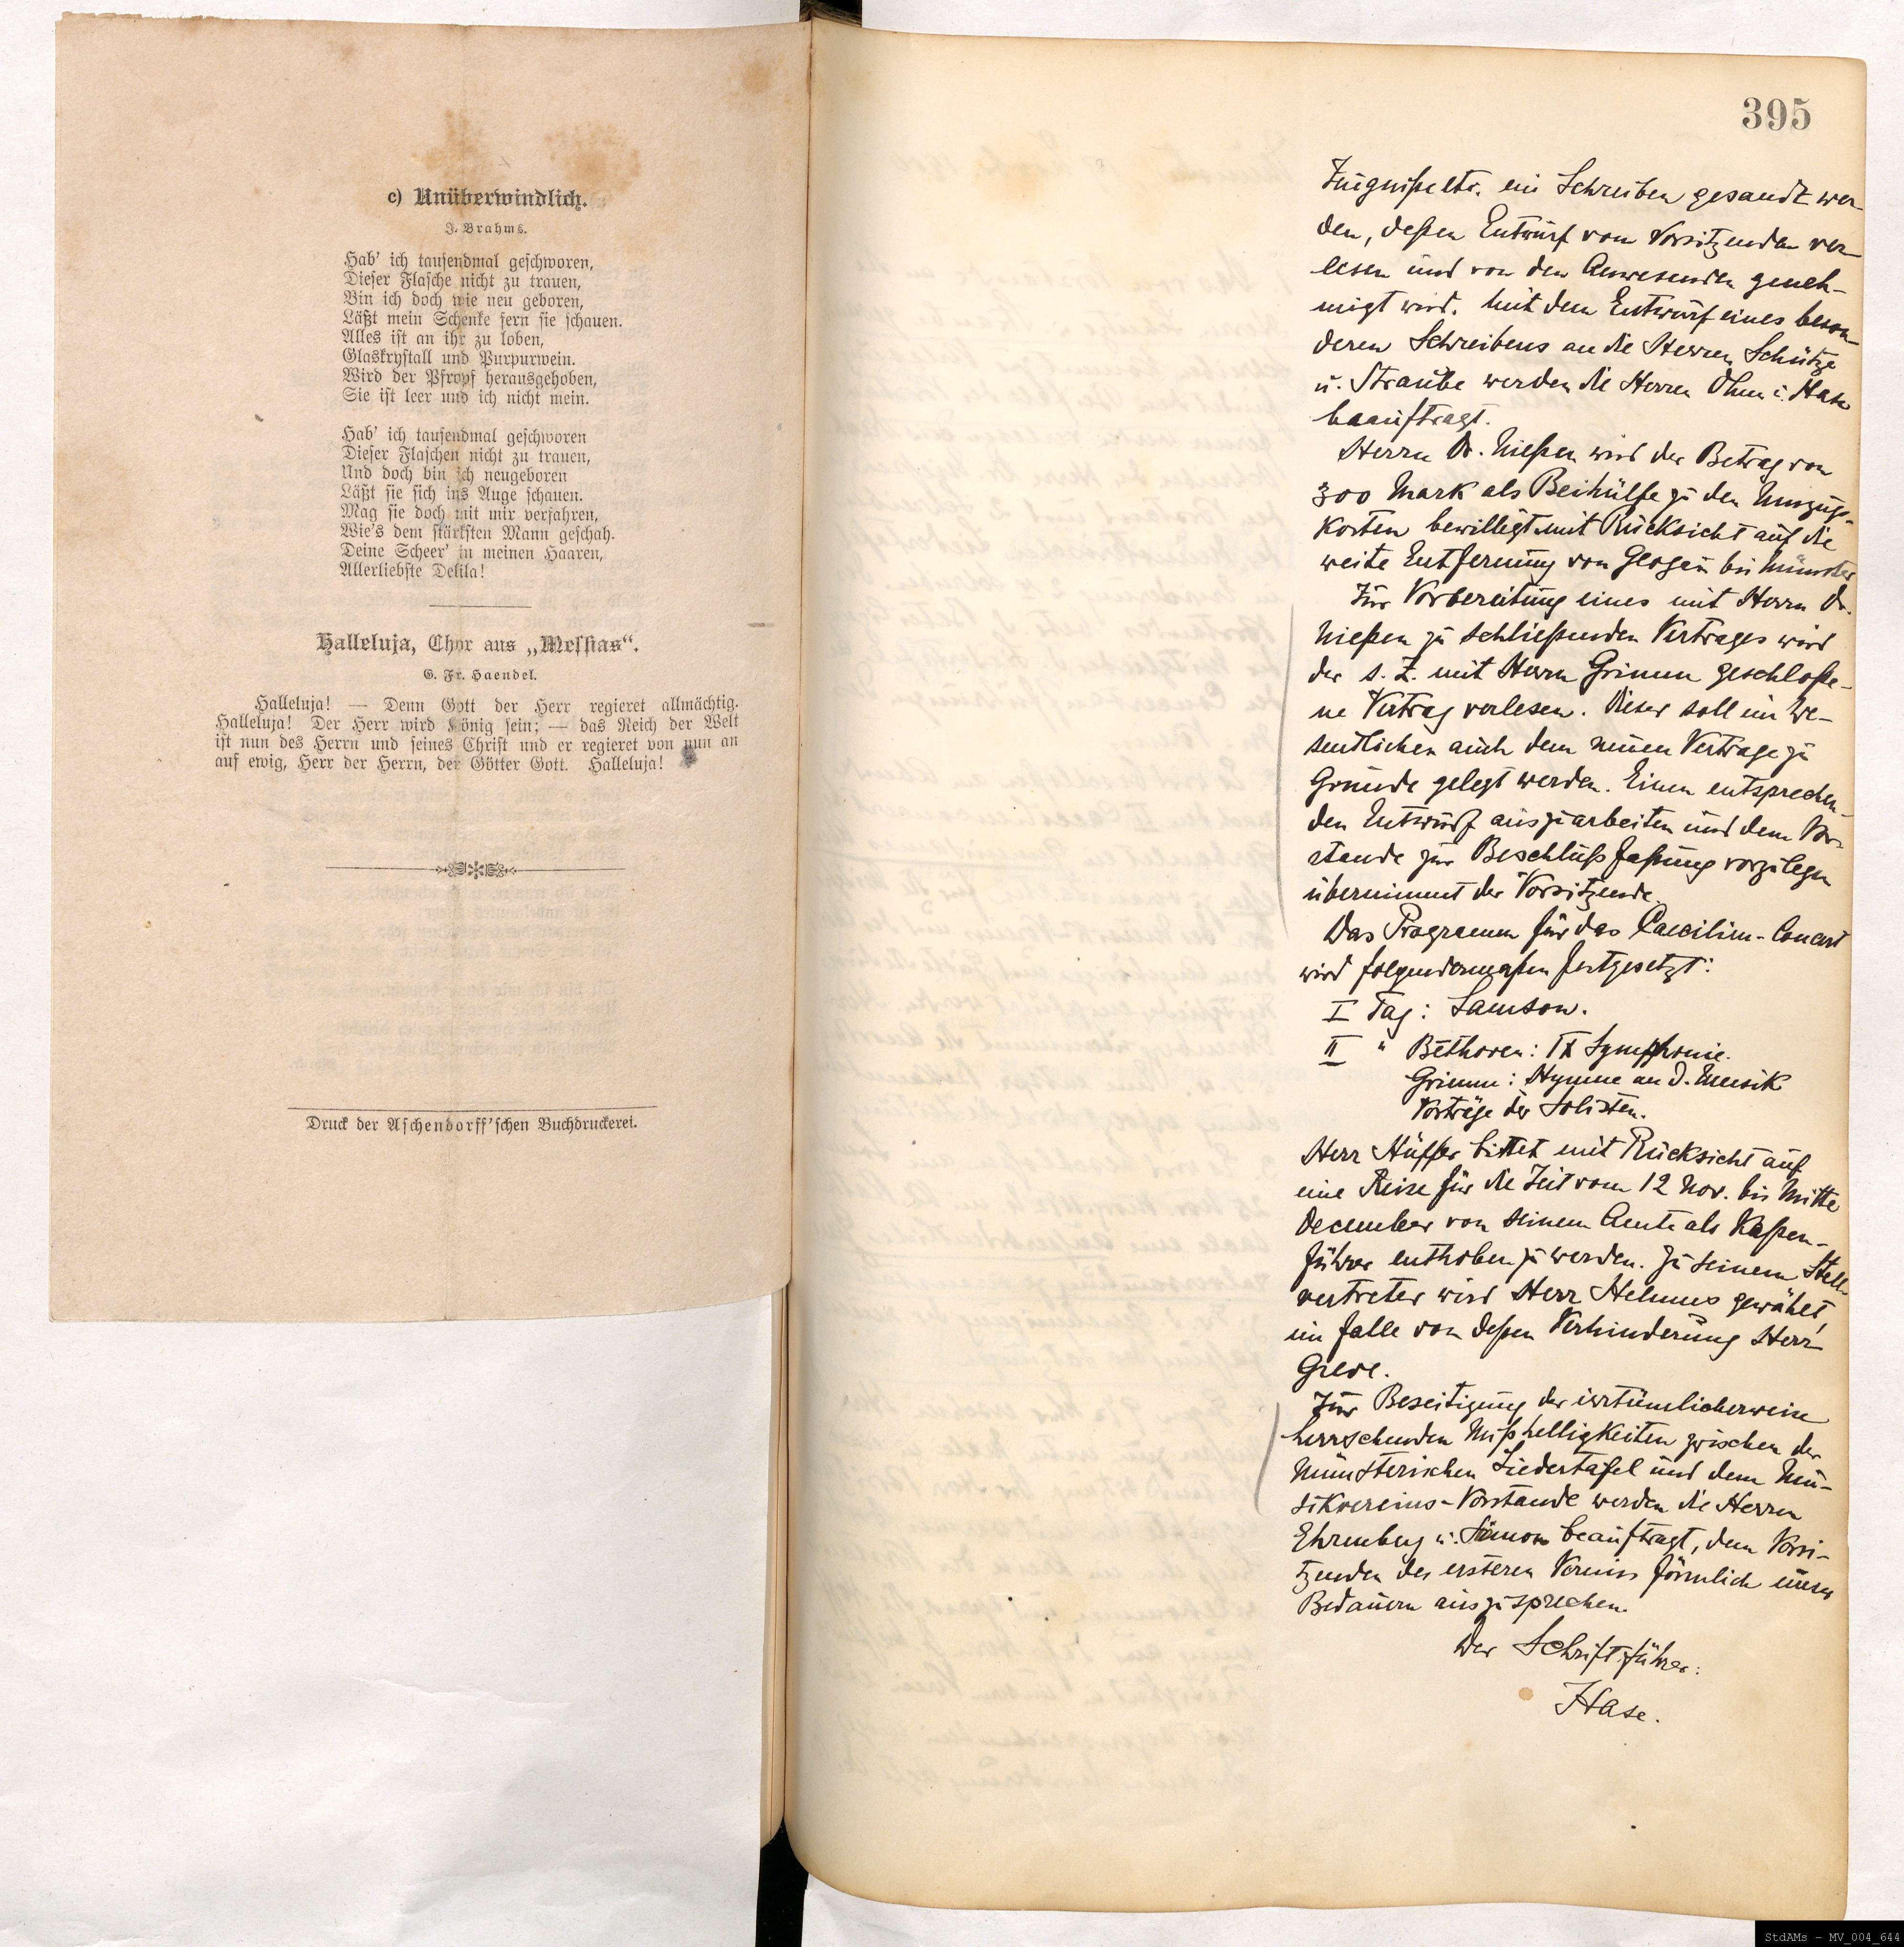 c) Unüberwindlich.
J. Brahms.
Hab' ich tausendmal geschworen,
Dieser Flasche nicht zu trauen,
Bin ich doch wie neu geboren,
Läßt mein Schenke fern sie schauen.
Alles ist an ihr zu loben,
Glaskrystall und Purpurwein.
Wird der Pfropf herausgehoben,
Sie ist leer und ich nicht mein.
Hab' ich tausendmal geschworen
Dieser Flaschen nicht zu trauen,
Und doch bin ich neugeboren
Läßt sie sich ins Auge schauen.
Mag sie doch mit mir verfahren,
Wie's dem stärksten Mann geschah.
Deine Scheer' in meinen Haaren,
Allerliebste Delila!
Halleluja, Chor aus „Messias“.
G. Fr. Haendel.
Halleluja! — Denn Gott der Herr regieret allmächtig.
Halleluja! Der Herr wird König sein; — das Reich der Welt
ist nun des Herrn und seines Christ und er regieret von nun an
auf ewig, Herr der Herrn, der Götter Gott. Halleluja!
Druck der Aschendorff'schen Buchdruckerei.
395
ein Schreiben gesandt wer-
den, deßen Entwurf vom Vorsitzenden ver-
lesen und von den Anwesenden geneh-
migt wird. Mit dem Entwurf eines beson-
deren Schreibens an die Herren Schütze
u. Straube werden die Herren Ohm u. Hase
beauftragt.
Herrn Dr. Nießen wird der Betrag von
300 Mark als Beihülfe zu den Umzugs-
kosten bewilligt mit Rücksicht auf die
weite Entfernung von Glogau bis Münster
Zur Vorbereitung eines mit Herrn Dr.
Nießen zu schließenden Vertrages wird
der s. Z. mit Herrn Grimm geschloße-
ne Vertrag verlesen. Dieser soll im We-
sentlichen auch dem neuen Vertrage zu
Grunde gelegt werden. Einen entsprechen-
den Entwurf auszuarbeiten und dem Vor-
stande zur Beschlußfaßung vorzulegen
übernimmt der Vorsitzende.
Das Programm für das Caecilien-Concert
wird folgendermaßen festgesetzt:
I Tag: Samson.
II " Bethoven: IX Symphonie.
Grimm: Hymne an d. Musik
Vorträge der Solisten.
Herr Hüffer bittet mit Rücksicht auf
eine Reise für die Zeit vom 12 Nov. bis Mitte
December von seinem Amte als Kaßen-
führer enthoben zu werden. Zu seinem Stell-
vertreter wird Herr Helmus gewählt,
im Falle von deßen Verhinderung Herr
Greve.
Zur Beseitigung der irrtümlicherweise
herrschenden Mißhelligkeiten zwischen der
Münsterischen Liedertafel und dem Mu-
sikvereins-Vorstande werden die Herren
Ehrenberg u. Simon beauftragt, dem Vorsi-
tzenden des ersteren Vereins förmlich unser
Bedauern auszusprechen.
Der Schriftführer:
Hase.
StdAMs - MV_004_644